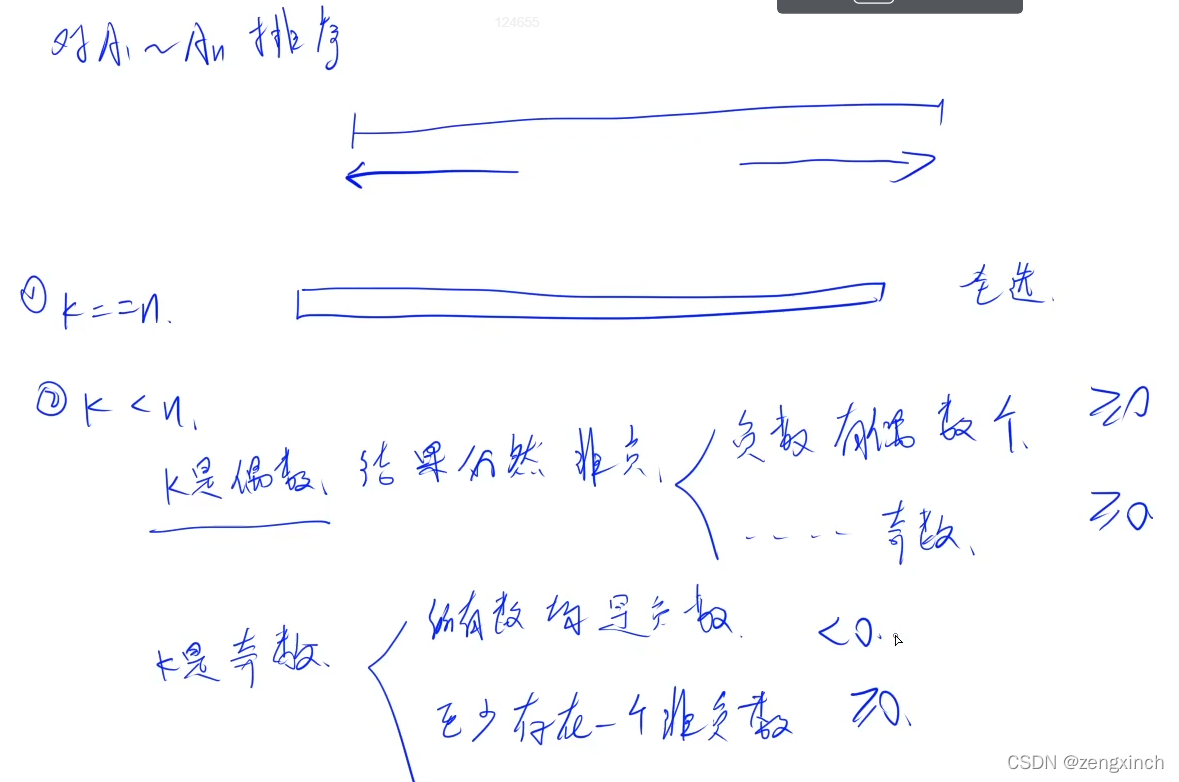 124655
对A₁~Aₙ排序
① k==n. 全选.
② k<n.
k是偶数、结果仍然非负、 负数有偶数个、 ≥0
---- 奇数、 ≥0
所有数均是负数. <0.
k是奇数、
至少存在一个非负数 ≥0、
CSDN @zengxinch